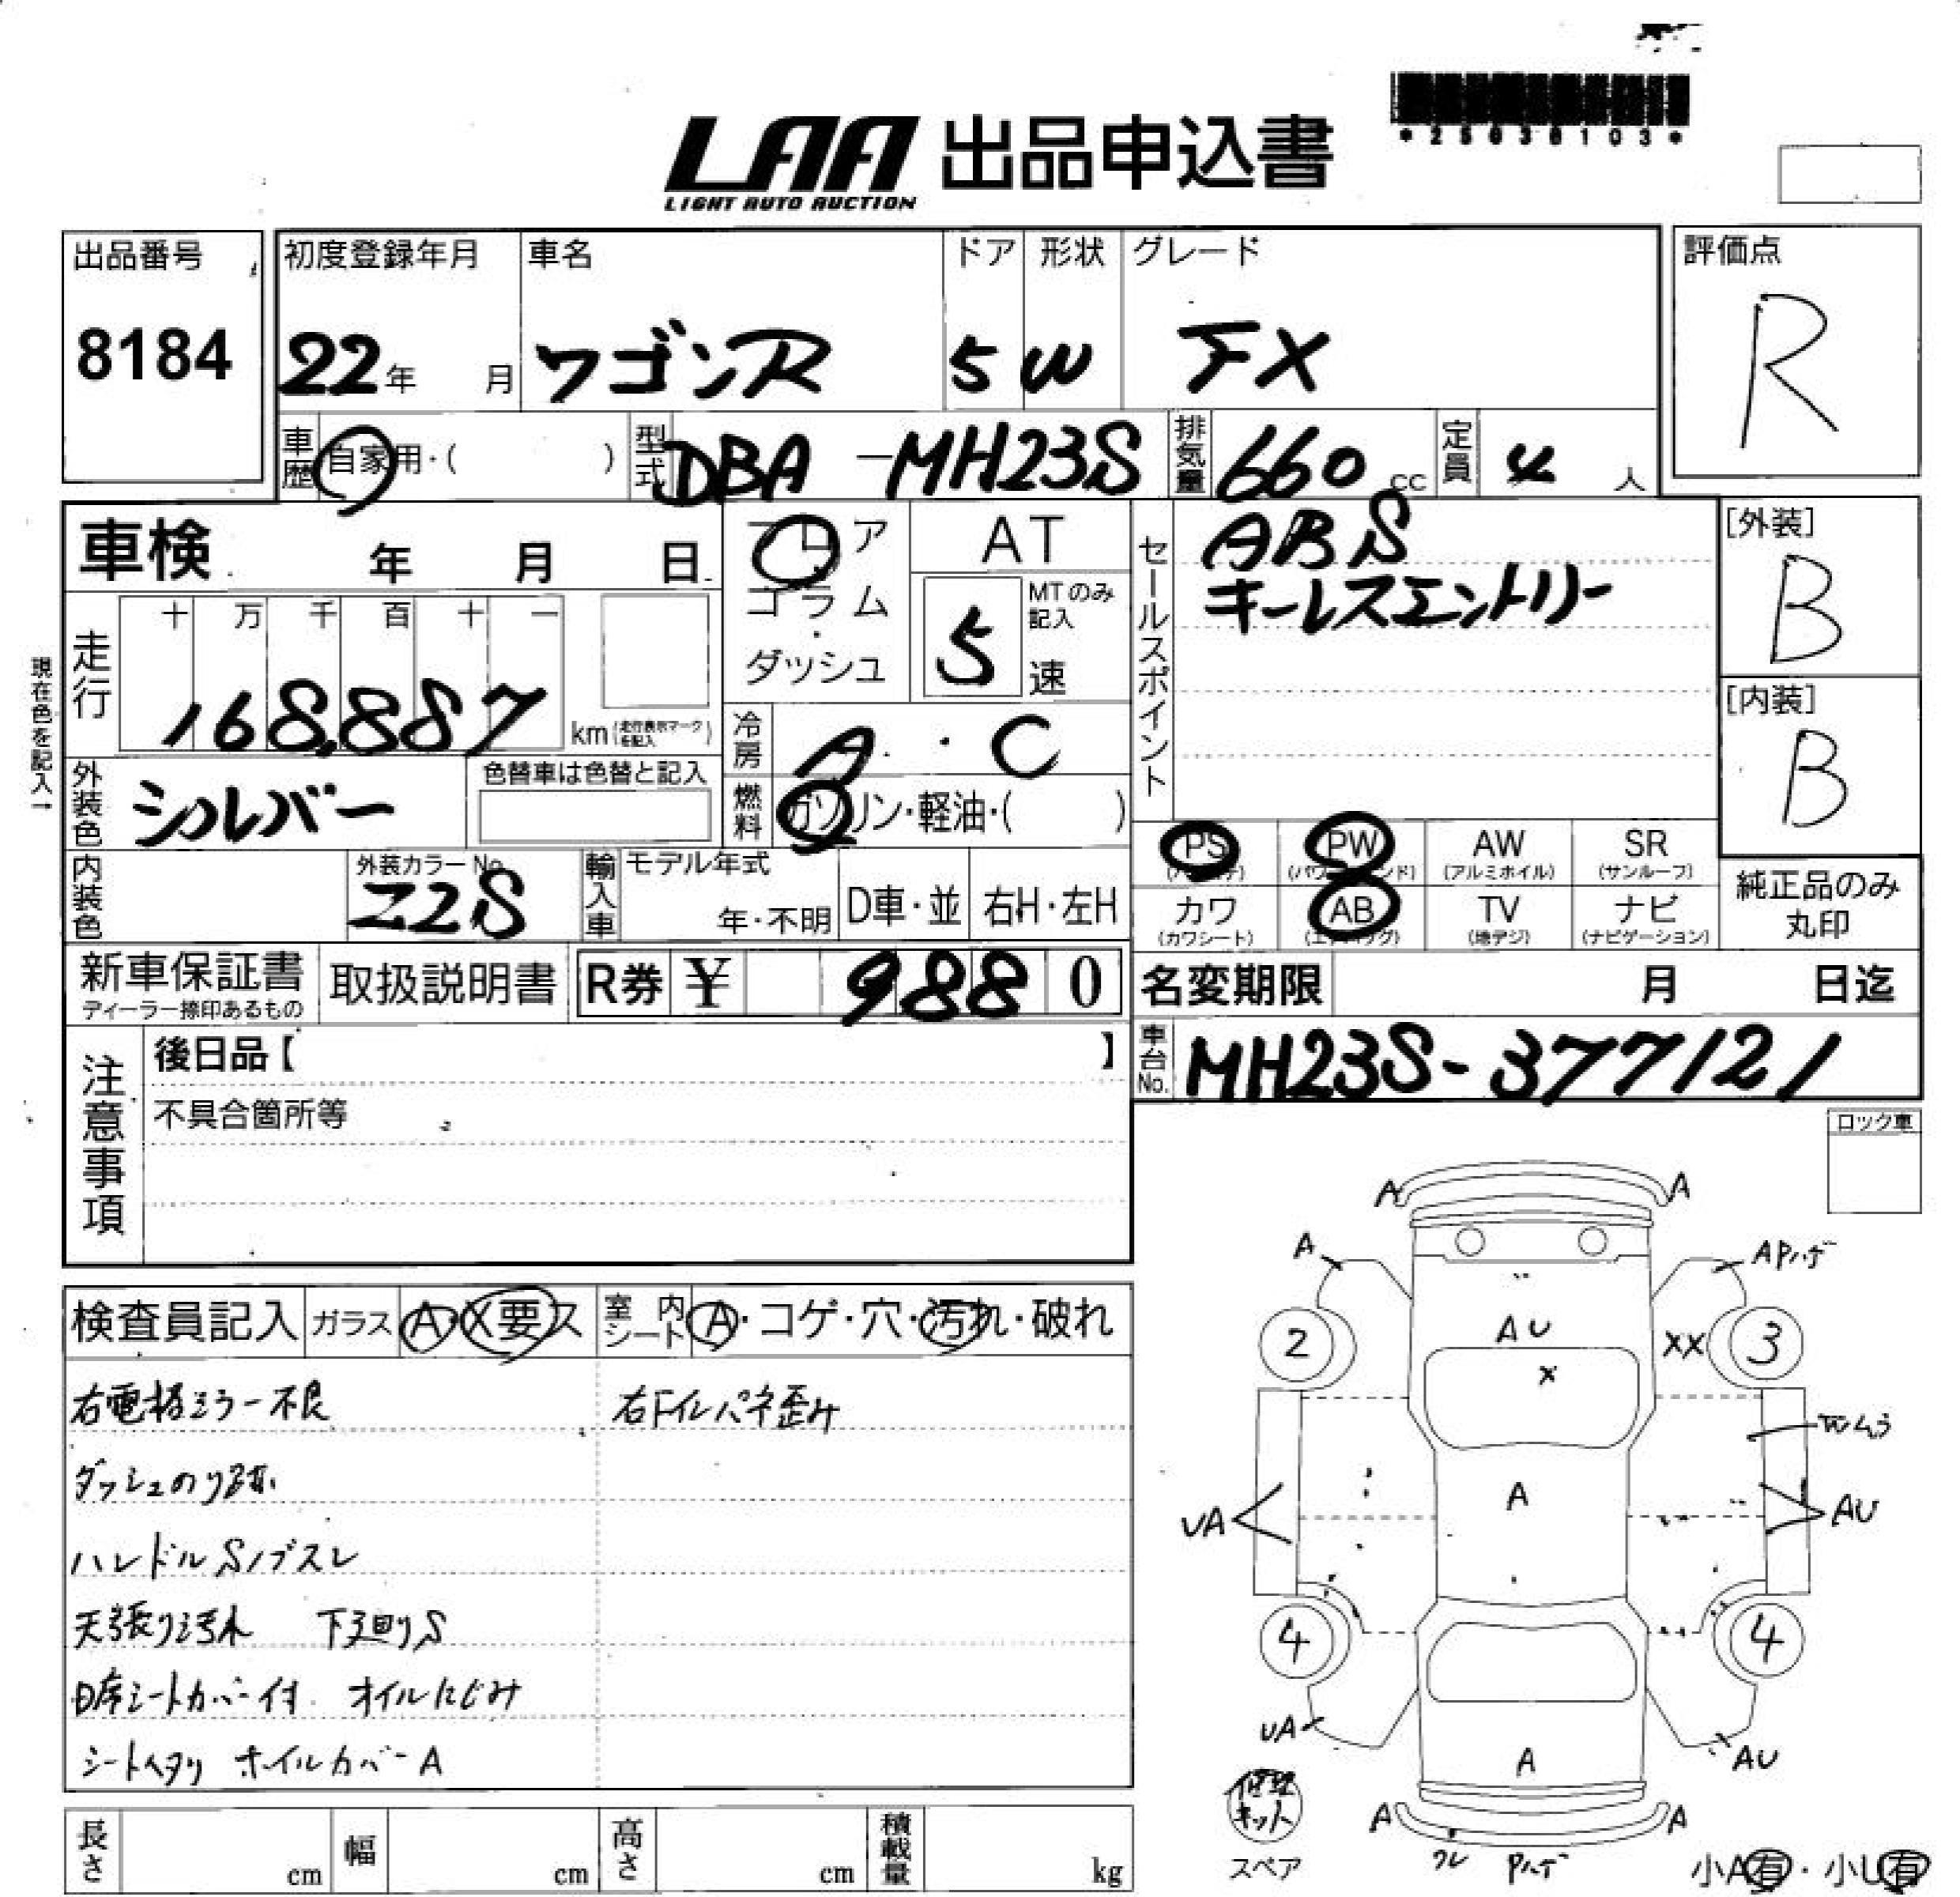 LAA 出品申込書
LIGHT AUTO AUCTION
*25030103*
出品番号
8184
初度登録年月
22年 月
車名
ワゴンR
ドア
5
形状
W
グレード
FX
評価点
R
車歴 自家用・( )
型式 DBA-MH23S
排気量 660cc
定員 4人
車検 年 月 日
フロア
コラム
・
ダッシュ
AT
MTのみ記入
5速
セールスポイント
ABS
キーレスエントリー
[外装]
B
[内装]
B
現在色を記入→
走行
十 万 千 百 十 一
168,887 km(走行表示マークを記入)
冷房 A・C
外装色 シルバー
色替車は色替と記入
燃料 ガソリン・軽油・( )
内装色
外装カラーNo.
Z2S
輸入車
モデル年式
年・不明
D車・並
右H・左H
PS PW AW SR
(アルミホイル) (サンルーフ)
カワ AB TV ナビ
(カワシート) (エアバッグ) (地デジ) (ナビゲーション)
純正品のみ
丸印
新車保証書
ディーラー捺印あるもの
取扱説明書
R券 ¥ 9880
名変期限 月 日迄
車台No. MH23S-377121
注意事項
後日品【 】
不具合箇所等
ロック車
検査員記入 ガラス A・X要ス
室内シート A・コゲ・穴・汚れ・破れ
右電格ミラー不良
右Fインパネ歪み
ダッシュのり跡
ハンドルS ノブスレ
天張り汚れ 下廻りS
D席シートカバー付 オイルにじみ
シートヘタリ ホイルカバーA
A A
A
APハゲ
2
AU
XX 3
X
ムラ
A
UA
AU
4
4
UA
A
AU
修理キット
スペア
A A
ワレ Pハゲ
小A有・小U有
長さ cm
幅 cm
高さ cm
積載量 kg